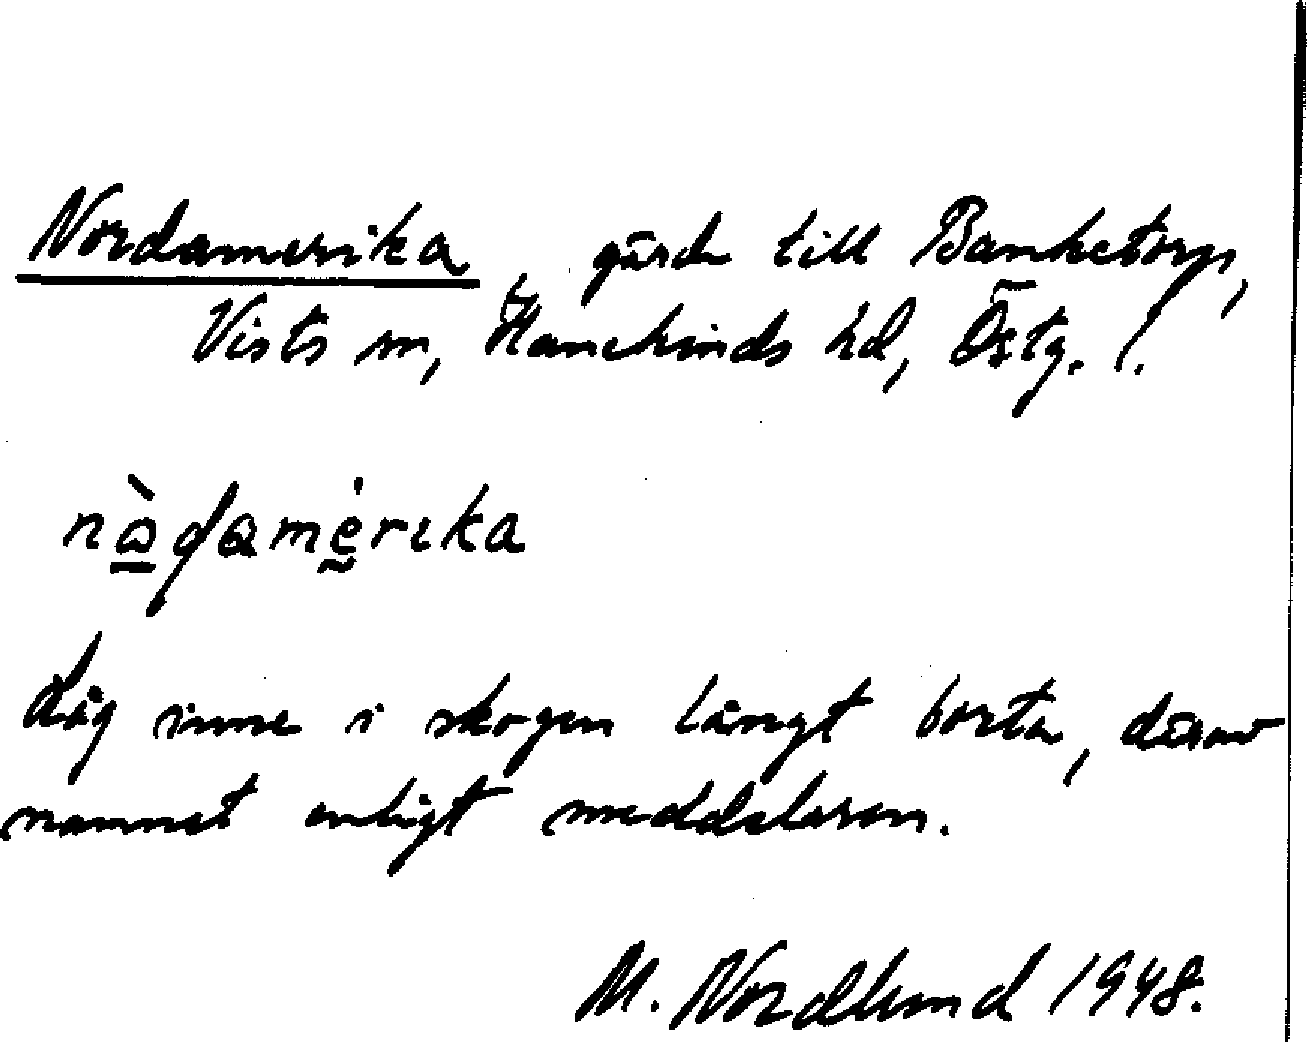 Nordamerika, gärde till Banketorp,
Vists sn, Hanekinds hd, Östg. l.
nàdamerika
Låg inne i skogen långt borta, därav
namnet enligt meddelaren.
M. Nordlund 1948.